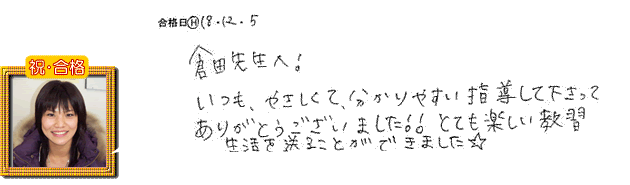 合格日Ⓗ18.12.5
祝・合格
倉田先生へ!
いつも、やさしくて、分かりやすい指導して下さって
ありがとうございました!!とても楽しい教習
生活を送ることができました☆